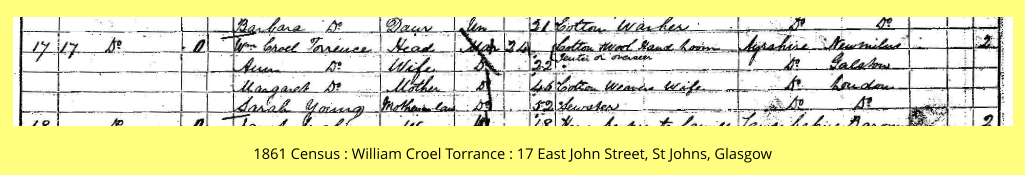 Barbara Do Daur Un 21 Cotton Washer Do Do
17 17 Do 0 Wm Croel Torrence Head Mar 24 Cotton Wool Hand Loom Ayrshire Newmilns 2
Tenter or overseer
Ann Do Wife Do 22 Do Galston
Margaret Do Mother Do 46 Cotton Weavers Wife Do Loudoun
Sarah Young Mother in law Do 52 Sewster Do Do
18 Do 0 18 2
1861 Census : William Croel Torrance : 17 East John Street, St Johns, Glasgow